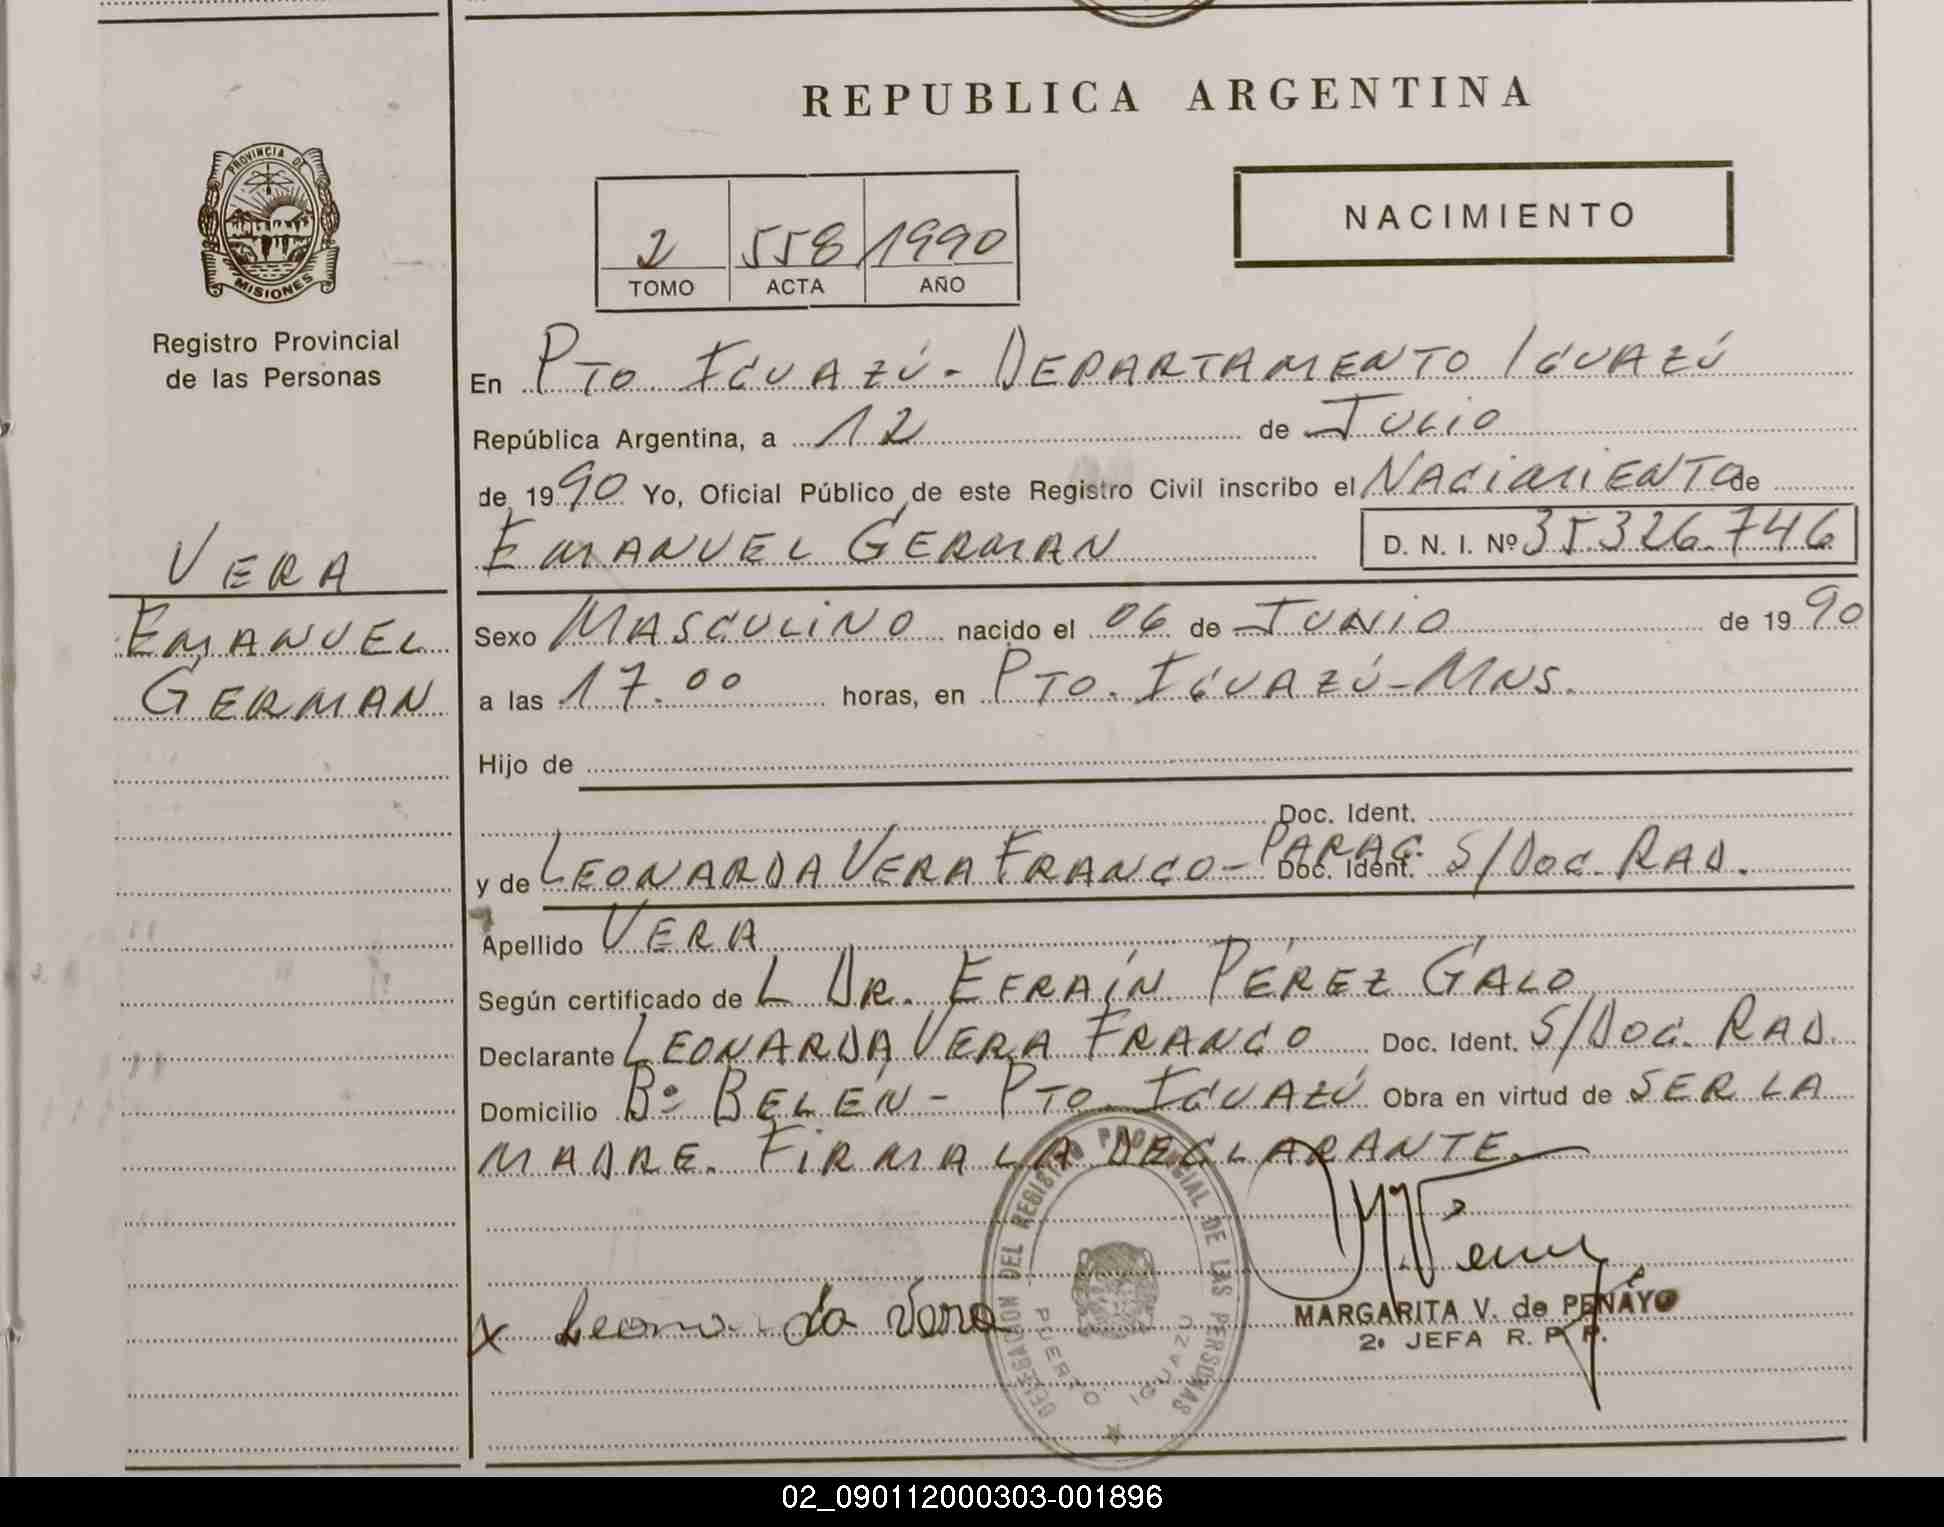 REPUBLICA ARGENTINA
PROVINCIA DE
MISIONES
Registro Provincial
de las Personas
NACIMIENTO
2 558 1990
TOMO ACTA AÑO
En PTO. IGUAZÚ - DEPARTAMENTO IGUAZÚ
República Argentina, a 12 de JULIO
de 1990 Yo, Oficial Público de este Registro Civil inscribo el NACIMIENTO de
EMANUEL GERMAN D. N. I. Nº 35.326.746
VERA
EMANUEL
GERMAN
Sexo MASCULINO nacido el 06 de JUNIO de 1990
a las 17.00 horas, en PTO. IGUAZÚ - MNS.
Hijo de
Doc. Ident.
y de LEONARDA VERA FRANCO - PARAG. Doc. Ident. S/DOC. RAD.
Apellido VERA
Según certificado de L DR. EFRAÍN PÉREZ GALO
Declarante LEONARDA VERA FRANCO Doc. Ident. S/DOC. RAD.
Domicilio Bº BELÉN - PTO. IGUAZÚ Obra en virtud de SER LA
MADRE. FIRMA LA DECLARANTE.
DELEGACION DEL REGISTRO PROVINCIAL DE LAS PERSONAS
PUERTO IGUAZU
x Leonarda Vera
MARGARITA V. de PENAYO
2ª JEFA R. P. P.
02_090112000303-001896